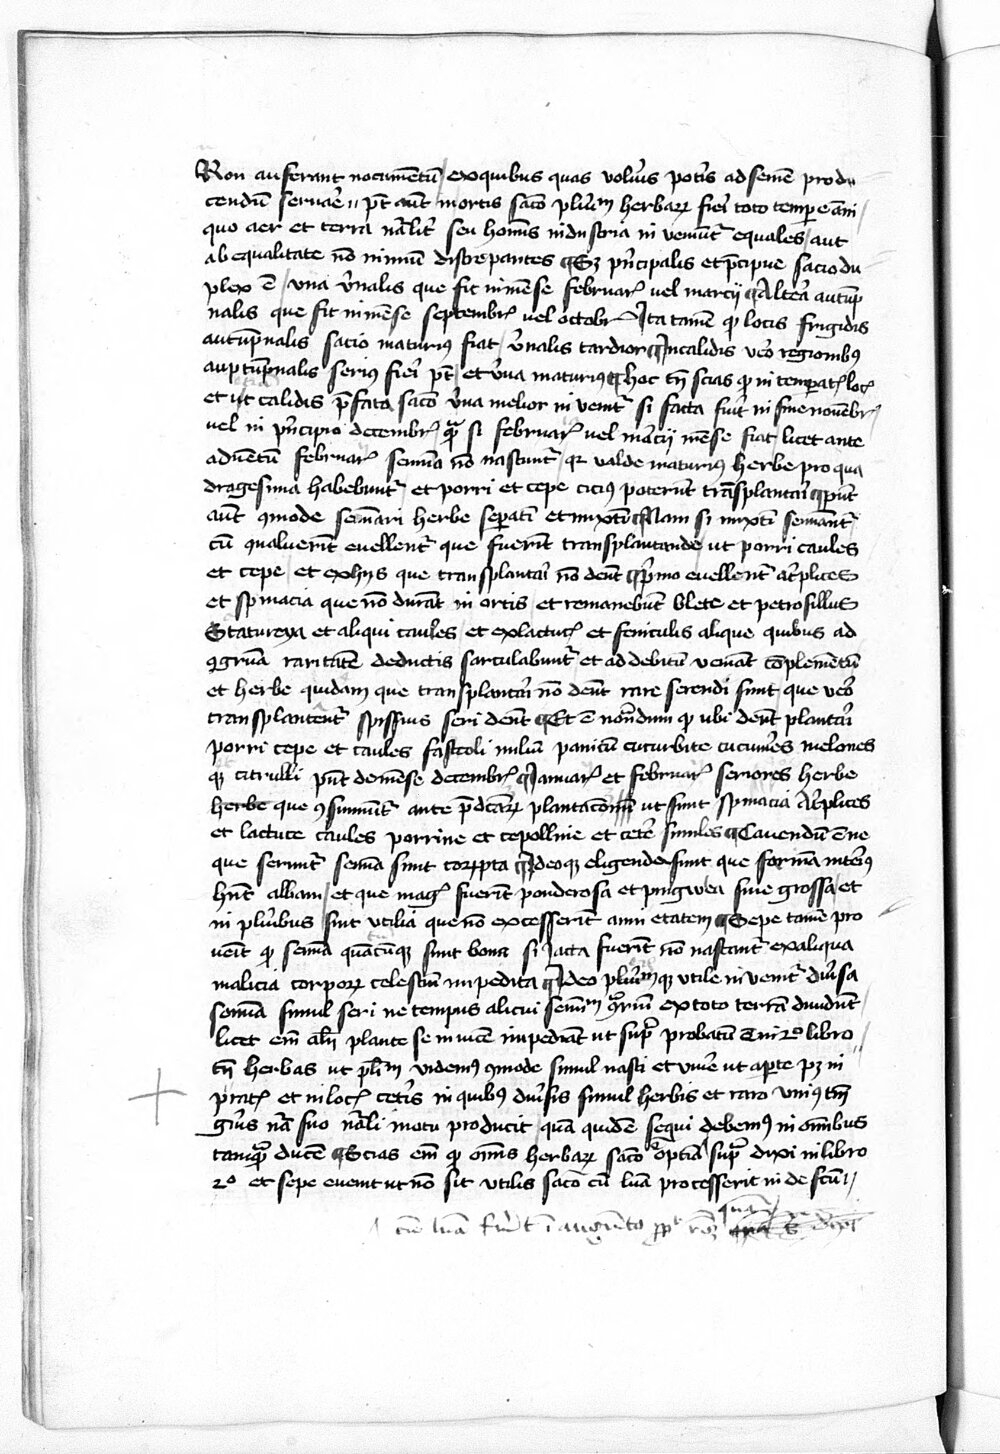 Non auferant nocumētū / ex quibus quas volu'is pot'is ad semē produ
cendū seruaē // Pt aūt mortis sacō plurim herbaꝝ fieri toto tempe āni
quo aer et terra nāliť seu homīs industria inveniūt equales / aut
ab equalitate nō nimiū discrepantes ¶ Sꝫ pncipalis et pcipue sacio du
plex ē / una v'nalis que fit in mēse februar vel marcij ¶ Altera autūp
nalis que fit in mēse septembr vel octobr Ita tamē ꝙ locis frigidis
autūpnalis sacio maturiꝰ fiat / v'nalis tardior ¶ In calidis vō regionibꝰ
auptūpnalis seriꝰ fieri pt / et v'na maturiꝰ ¶ hoc tn scias ꝙ in temperatꝭ locꝭ
et ut calidis pfata sacō v'na melior inveniť si facta fuit in fine nouēbr
vel in pncipio decembr / qꝫ si februar vel marcij mēse fiat licet ante
aduētū februar semina nō nascunť qꝛ valde maturiꝰ herbe pro qua
dragesima habebunť et porri et cepe ciciꝰ poterūt trāsplantari ¶ Pnt
aūt ꝯmode semīari herbe sepatī et mixtī ¶ Nam si mixtī semīanť
cū qualuerīt euellenť que fuerīt transplantande ut porri caules
et cepe / et ex hijs que transplantari nō dent ¶ pmo euellenť atriplices
et spinacia que nō durāt in ortis / et remanebūt blete et petrosillus
Statureya et aliqui caules / et ex lactucꝭ et feniculis alique quibus ad
ꝯgruā raritatē deductis sarculabunť et ad debitū veniāt cōplemētū
et herbe quidam que transplantari nō dent rare serendi sunt que vō
transplantenť spissius seri dent ¶ Et ē notandum ꝙ ubi dent plantari
porri cepe et caules fascoli miliū panicū cucurbite cucumēs melones
qꝫ citrulli pnt de mēse decembr ¶ Ianuar et februar seriores herbe
herbe que ꝯsumunť ante pdcāꝝ plantacōnē ut sunt spinacia Atriplices
et lactuce caules porrine et cepolline et cetē similes ¶ Cauendū ē ne
que serunť semīa sint corrupta ¶ Ideoqꝫ eligenda sunt que formā interiꝰ
hnt albam / et que magꝭ fuerīt ponderosa et pingwia siue grossa / et
in pluribus sint utilia que nō excesserīt anni etatem ¶ Sepe tamē pro
uenit ꝙ semīa quācūqꝫ sint bona si Iacta fuerīt nō nascanť ex aliqua
malicia corpoꝝ celestiū impedita ¶ Ideo plurimqꝫ utile inveniť diu'sa
semīa simul seri ne tempus alicui semīm ꝯtriū ex toto terrā diuidūt
licet em alij plante se inuicē impediāt ut supr probatū ē in 2º libro
tn herbas ut plrim videmꝰ ꝯmode simul nasci et viue ut apte pꝫ in
pratꝭ et in locꝭ cetis in quibꝰ diu'sis simul herbis et raro uniꝰ tm
gn'is nā suo nāli motu producit / quā quidē sequi debemꝰ in omībus
tamqꝫ ducē ¶ Scias em ꝙ omīs herbaꝝ sacō optīa supr dixi in libro
2º et sepe euenit ut nō sit utilis sacō cū luā processerit in defcū //
cū luā fu'it ī augmēto ppť